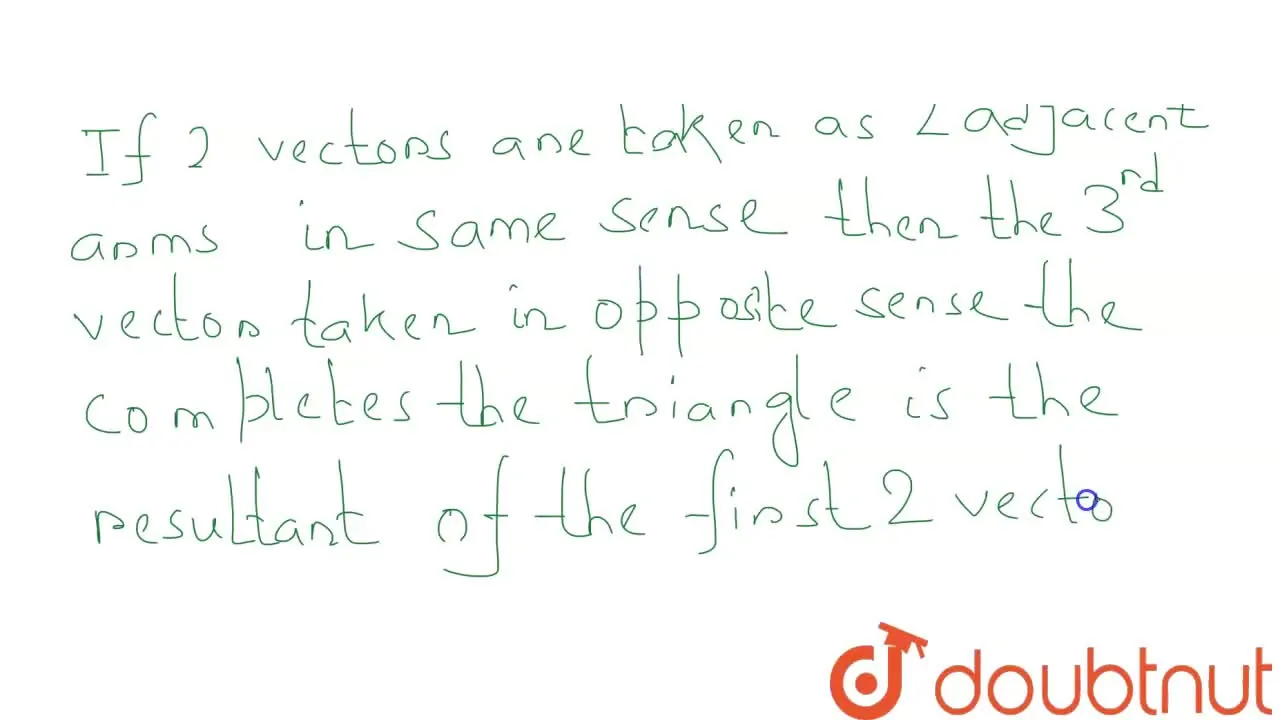 If 2 vectors are taken as 2 adjacent
arms in same sense then the 3rd
vector taken in opposite sense the
completes the triangle is the
resultant of the first 2 vecto
doubtnut